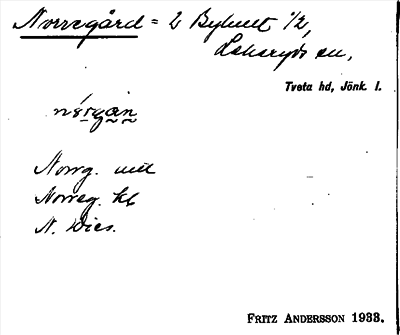 Norregård = 2 Byhult 1/2,
Lekeryds sn,
Tveta hd, Jönk. l.
Norrg. uttl
Norreg. kb
N. Dies.
FRITZ ANDERSSON 1933.